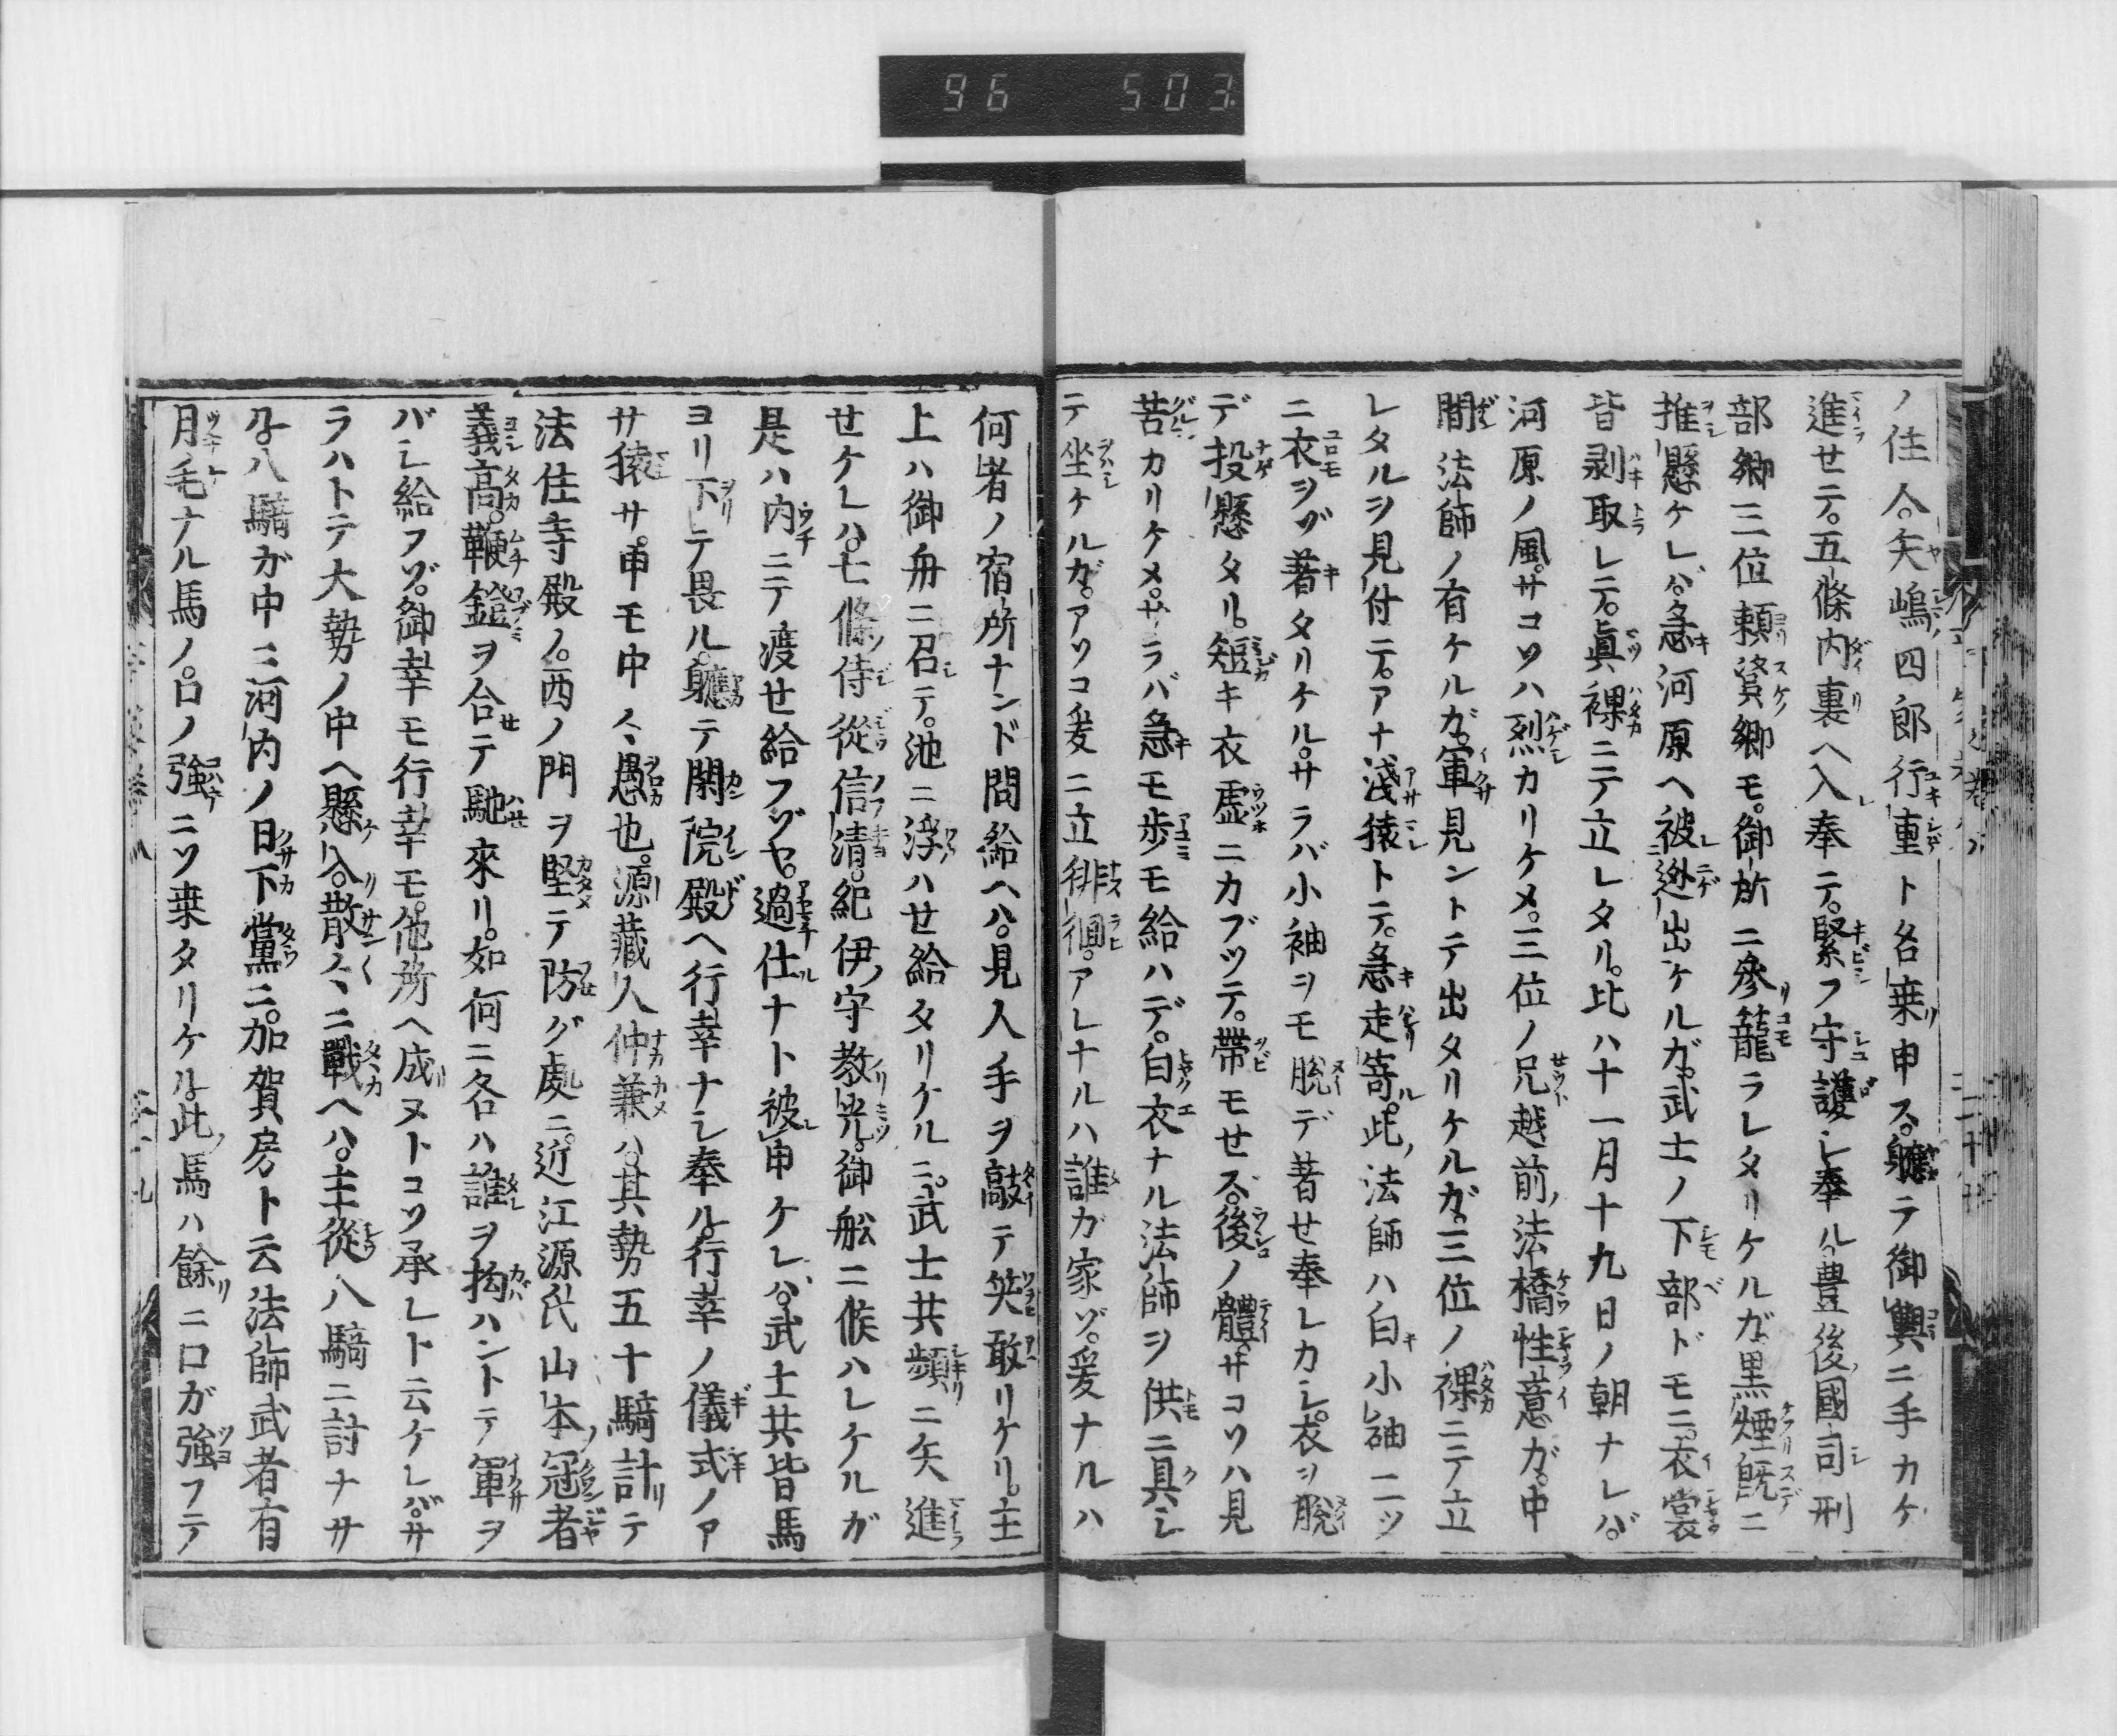 96 503
ノ住人。矢嶋四郎行重ト名乗申ス。軈テ御輿ニ手カケ
進セテ。五條内裏ヘ入奉テ。緊フ守護シ奉ル。豊後國司刑
部卿三位頼資卿モ。御所ニ參籠ラレタリケルガ。黒煙既ニ
推懸ケレバ。急河原ヘ被逃出ケルガ。武士ノ下部ドモニ。衣裳
皆剥取レテ。眞裸ニテ立レタル。比ハ十一月十九日ノ朝ナレバ。
河原ノ風。サコソハ烈カリケメ。三位ノ兄越前法橋性意ガ。中
間法師ノ有ケルガ。軍見ントテ出タリケルガ。三位ノ裸ニテ立
レタルヲ見付テ。アナ淺猿トテ。急走寄。此法師ハ白小袖二ツ
ニ衣ヲゾ著タリケル。サラバ小袖ヲモ脱デ著セ奉レカシ。衣ヲ脱
デ投懸タル。短キ衣虚ニカブツテ。帶モせズ。後ノ體。サコソハ見
苦カリケメ。サラバ急モ歩モ給ハデ。白衣ナル法師ヲ供ニ具シ
テ坐ケルガ。アソコ爰ニ立徘徊。アレナルハ誰ガ家ゾ。爰ナルハ
何者ノ宿所ナンド問給ヘハ。見人手ヲ敲テ笑敢リケリ。主
上ハ御舟ニ召テ。池ニ浮ハせ給タリケルニ。武士共頻ニ矢進
せケレハ。七條侍從信清。紀伊守教光。御舩ニ候ハレケルガ
是ハ内ニテ渡せ給フゾヤ。過仕ナト被申ケレバ。武士共皆馬
ヨリ下テ畏ル。軈テ閑院殿ヘ行幸ナシ奉ル。行幸ノ儀式ノア
サ猿サ。申モ中々愚也。源藏人仲兼ハ。其勢五十騎計テ
法住寺殿ノ。西ノ門ヲ堅テ防グ處ニ。近江源氏山本冠者
義高。鞭鐙ヲ合テ馳來リ。如何ニ各ハ誰ヲ拘ハントテ軍ヲ
バシ給フゾ。御幸モ行幸モ。他所ヘ成ヌトコソ承レト云ケレバ。サ
ラハトテ大勢ノ中ヘ懸入。散々ニ戰ヘハ。主從八騎ニ討ナサ
ル。八騎ガ中ニ河内ノ日下黨ニ。加賀房ト云法師武者有
月毛ナル馬ノ。口ノ強ニソ乗タリケル。此馬ハ餘ニ口ガ強フテ